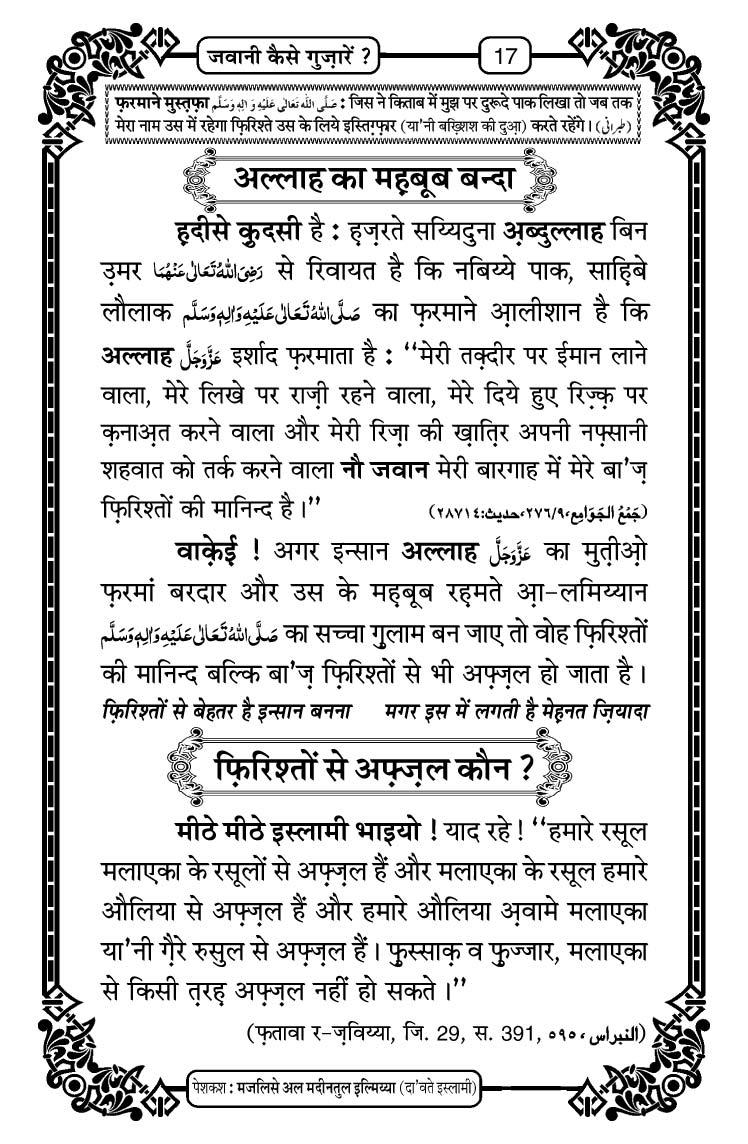 जवानी कैसे गुज़ारें ?
17
फ़रमाने मुस्तफ़ा صَلَّى اللّٰهُ تَعَالٰى عَلَيْهِ وَاٰلِهٖ وَسَلَّم : जिस ने किताब में मुझ पर दुरूदे पाक लिखा तो जब तक
मेरा नाम उस में रहेगा फ़िरिश्ते उस के लिये इस्तिग़्फ़ार (या'नी बख़्शिश की दुआ़) करते रहेंगे। (طبرانی)
अल्लाह का मह़बूब बन्दा
ह़दीसे क़ुदसी है : ह़ज़रते सय्यिदुना अ़ब्दुल्लाह बिन
उ़मर رَضِىَ اللّٰهُ تَعَالٰى عَنْهُمَا से रिवायत है कि नबिय्ये पाक, साह़िबे
लौलाक صَلَّى اللّٰهُ تَعَالٰى عَلَيْهِ وَاٰلِهٖ وَسَلَّم का फ़रमाने आ़लीशान है कि
अल्लाह عَزَّوَجَلَّ इर्शाद फ़रमाता है : ‘‘मेरी तक़्दीर पर ईमान लाने
वाला, मेरे लिखे पर राज़ी रहने वाला, मेरे दिये हुए रिज़्क़ पर
क़नाअ़त करने वाला और मेरी रिज़ा की ख़ात़िर अपनी नफ़्सानी
शहवात को तर्क करने वाला नौ जवान मेरी बारगाह में मेरे बा'ज़
फ़िरिश्तों की मानिन्द है।’’ (جَمْعُ الجَوامِع،٢٧٦/٩،حديث:٢٨٧١٤)
वाक़ेई ! अगर इन्सान अल्लाह عَزَّوَجَلَّ का मुत़ीओ़
फ़रमां बरदार और उस के मह़बूब रहमते आ़-लमिय्यान
صَلَّى اللّٰهُ تَعَالٰى عَلَيْهِ وَاٰلِهٖ وَسَلَّم का सच्चा ग़ुलाम बन जाए तो वोह फ़िरिश्तों
की मानिन्द बल्कि बा'ज़ फ़िरिश्तों से भी अफ़्ज़ल हो जाता है।
फ़िरिश्तों से बेहतर है इन्सान बनना मगर इस में लगती है मेह़नत ज़ियादा
फ़िरिश्तों से अफ़्ज़ल कौन ?
मीठे मीठे इस्लामी भाइयो ! याद रहे ! ‘‘हमारे रसूल
मलाएका के रसूलों से अफ़्ज़ल हैं और मलाएका के रसूल हमारे
औलिया से अफ़्ज़ल हैं और हमारे औलिया अ़वामे मलाएका
या'नी ग़ैरे रुसुल से अफ़्ज़ल हैं। फ़ुस्साक़ व फ़ुज्जार, मलाएका
से किसी त़रह़ अफ़्ज़ल नहीं हो सकते।’’
(फ़तावा र-ज़विय्या, जि. 29, स. 391, النبراس، ٥٩٥)
पेशकश : मजलिसे अल मदीनतुल इल्मिय्या (दा'वते इस्लामी)